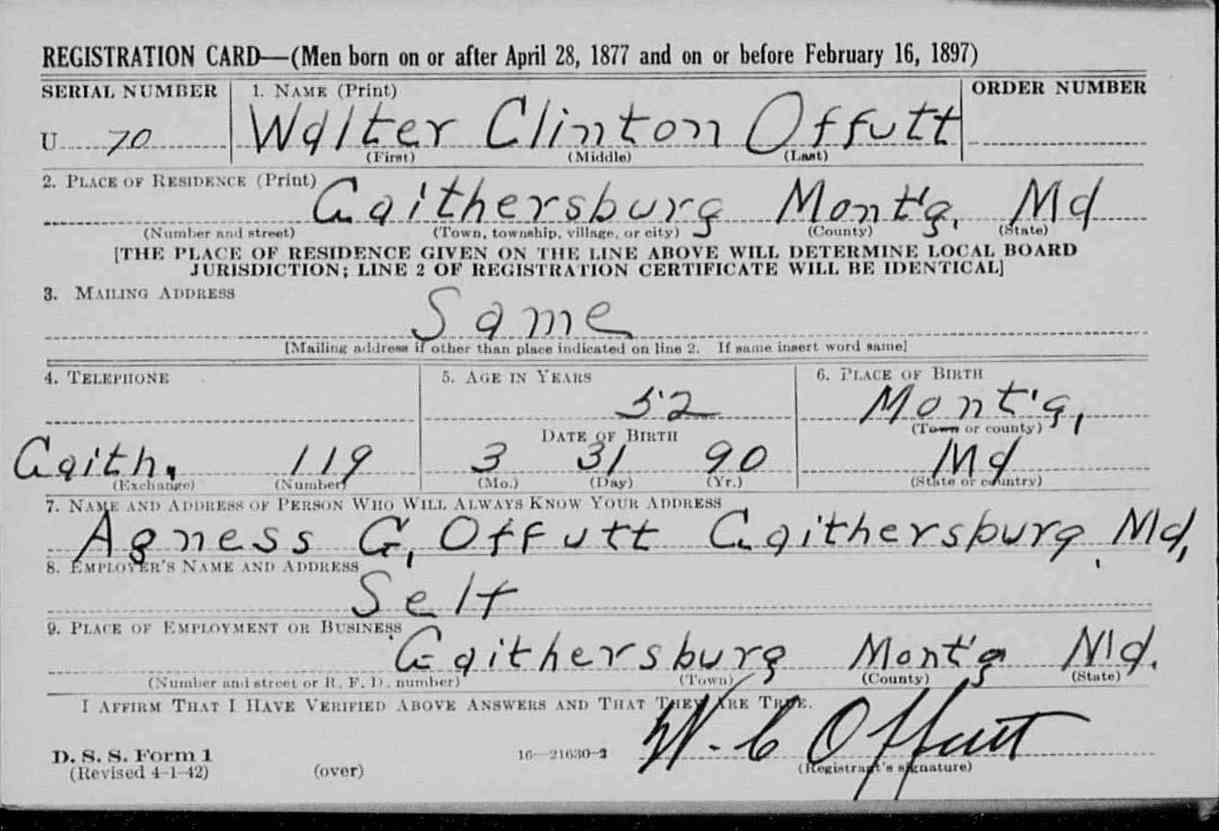 REGISTRATION CARD—(Men born on or after April 28, 1877 and on or before February 16, 1897)
SERIAL NUMBER 1. NAME (Print) ORDER NUMBER
U 70 Walter Clinton Offutt
(First) (Middle) (Last)
2. PLACE OF RESIDENCE (Print)
Gaithersburg Mont'g. Md
(Number and street) (Town, township, village, or city) (County) (State)
[THE PLACE OF RESIDENCE GIVEN ON THE LINE ABOVE WILL DETERMINE LOCAL BOARD
JURISDICTION; LINE 2 OF REGISTRATION CERTIFICATE WILL BE IDENTICAL]
3. MAILING ADDRESS
Same
[Mailing address if other than place indicated on line 2. If same insert word same]
4. TELEPHONE 5. AGE IN YEARS 6. PLACE OF BIRTH
52 Mont'g,
DATE OF BIRTH (Town or county)
Gaith. 119 3 31 90 Md
(Exchange) (Number) (Mo.) (Day) (Yr.) (State or country)
7. NAME AND ADDRESS OF PERSON WHO WILL ALWAYS KNOW YOUR ADDRESS
Agness G, Offutt Gaithersburg, Md,
8. EMPLOYER'S NAME AND ADDRESS
Self
9. PLACE OF EMPLOYMENT OR BUSINESS
Gaithersburg Mont'g Md.
(Number and street or R. F. D. number) (Town) (County) (State)
I AFFIRM THAT I HAVE VERIFIED ABOVE ANSWERS AND THAT THEY ARE TRUE.
W. C Offutt
D. S. S. Form 1 16—21630-2
(Revised 4-1-42) (over) (Registrant's signature)